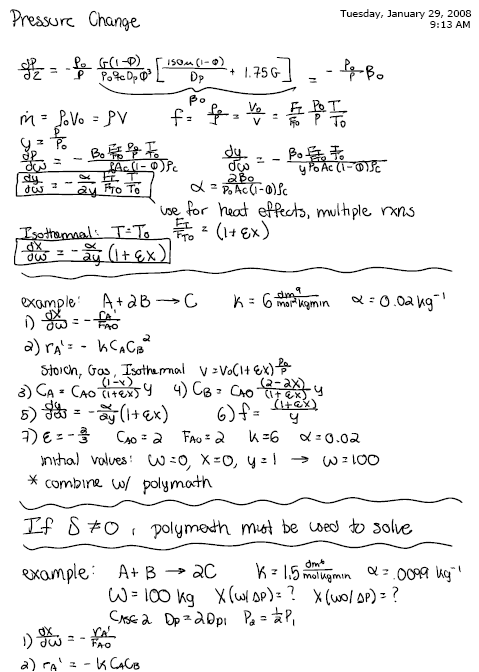 Pressure Change
Tuesday, January 29, 2008
9:13 AM
dP/dz = -ρ₀/ρ G(1-Φ)/(ρ₀ gc Dp Φ³) [150μ(1-Φ)/Dp + 1.75G] = -ρ₀/ρ β₀
β₀
ṁ = ρ₀V₀ = ρV f = ρ₀/ρ = V₀/V = FT/FT0 P₀/P T/T₀
y = P/P₀
dP/dω = -β₀ FT/FT0 P₀/P T/T₀ / (ρAc(1-Φ)ρc) dy/dω = -β₀ FT/FT0 T/T₀ / (yP₀Ac(1-Φ)ρc)
dy/dω = -α/2y FT/FT0 T/T₀ α = 2β₀/(P₀Ac(1-Φ)ρc)
use for heat effects, multiple rxns
Isothermal: T=T₀ FT/FT0 = (1+εX)
dX/dω = -α/2y (1+εX)
example: A+2B → C k = 6 dm⁹/mol²kgmin α = 0.02 kg⁻¹
1) dX/dω = -rA'/FA0
2) rA' = - kCACB²
Stoich, Gas, Isothermal V=V₀(1+εX) P₀/P
3) CA = CA0 (1-x)/(1+εx) y 4) CB = CA0 (2-2X)/(1+εX) y
5) dy/dω = -α/2y (1+εX) 6) f = (1+εX)/y
7) ε = -2/3 CA0 = 2 FA0 = 2 k=6 α=0.02
initial values: ω=0, X=0, y=1 → ω=100
* combine w/ polymath
If δ ≠ 0, polymath must be used to solve
example: A+B → 2C k = 1.5 dm⁶/molkgmin α = .0099 kg⁻¹
ω = 100 kg X(w/ ΔP) = ? X(wo/ ΔP) = ?
Case 2 Dp = 2Dp1 P₂ = ½P₁
1) dX/dω = -rA'/FA0
2) rA' = - kCACB